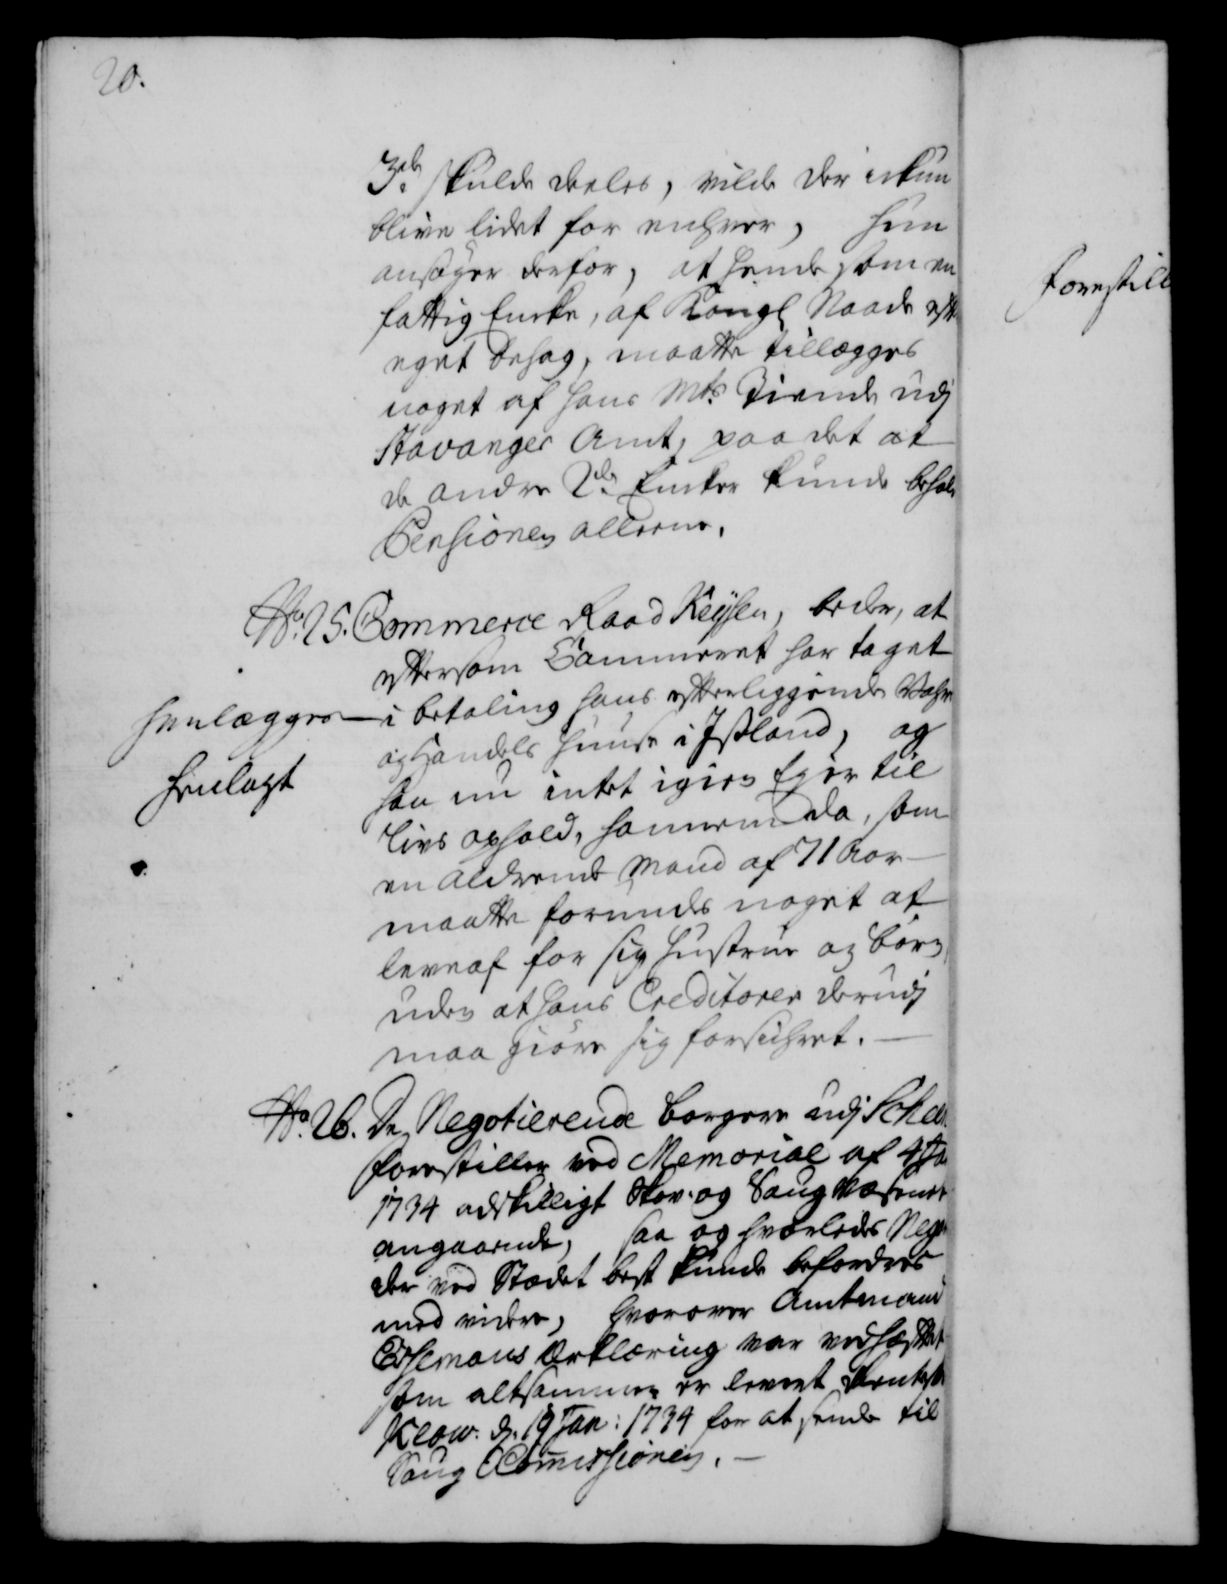 20.
3de skulde deeles, vilde der ickun
blive lidet for enhver, hun
ansøger derfor, at hende, som en
fattig Encke, af Kongl Naade eft
eget behag, maatte tillægges
noget af Hans Mts Tiende udj
Stavanger Amt, paa det at
de andre 2de Encker kunde behol
Pensionen allene.
No. 25. Commerce Raad Keysen, beder, at
eftersom Cammeret har taget
i betaling hans efterliggende Vahre
og Handels Huuse i Jsland, og
han nu intet igien Ejer til
Livs ophold, hannem da, som
en aldrende Mand af 71 Aar
maatte forundes noget at
leve af for sig Hustrue og børn,
uden at hans Creditorer derudj
maa giøre sig forsichret.
henlægges
henlagt
No. 26. De Negotierende borgere udj Scheen
forestiller ved Memorial af 4 Ja
1734 adskilligt Skov- og Saugvæsenet
angaaende, saa og hvorledes Nego
der ved Stædet best kunde befordres
med videre, hvorover Amtmand
Erklæring var vedhæftet
som altsammen er leveret
Klow. d. 19 Jan: 1734 for at sende til
Saug Commissionen.
Forestill